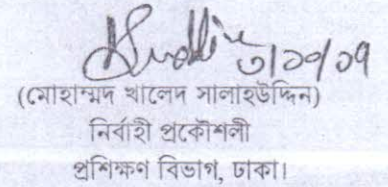 ৩/১০/১৭
(মোহাম্মদ খালেদ সালাহউদ্দিন)
নির্বাহী প্রকৌশলী
প্রশিক্ষণ বিভাগ, ঢাকা।